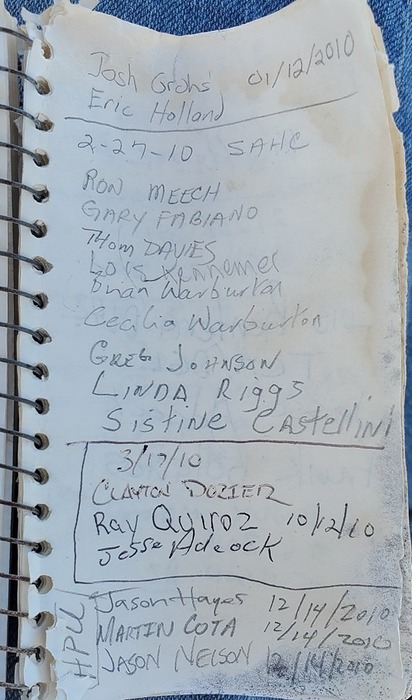 Josh Grohs 01/12/2010
Eric Holland
2-27-10 SAHC
RON MEECH
GARY FABIANO
THOM DAVIES
Lois Kennemer
Brian Warburton
Cecilia Warburton
GREG JOHNSON
LINDA Riggs
Sistine Castellini
3/17/10
CLAYTON DOZIER
Ray Quiroz 10/12/10
Jesse Adcock
HPU
Jason Hayes 12/14/2010
MARTIN COTA 12/14/2010
JASON NELSON 12/14/2010